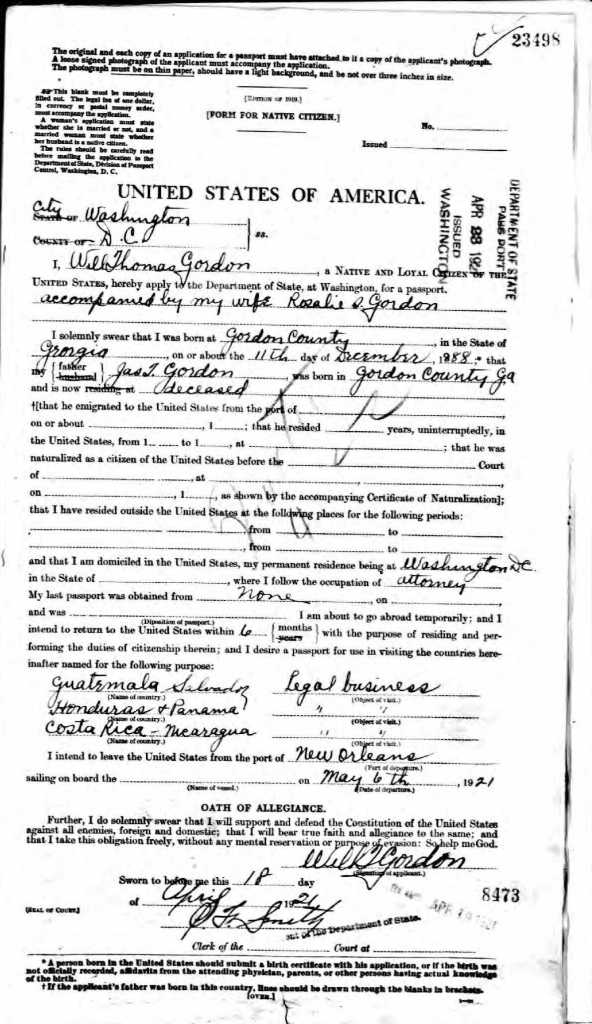 23498
The original and each copy of an application for a passport must have attached to it a copy of the applicant's photograph.
A loose signed photograph of the applicant must accompany the application.
The photograph must be on thin paper, should have a light background, and be not over three inches in size.
This blank must be completely
filled out. The legal fee of one dollar,
in currency or postal money order,
must accompany the application.
A woman's application must state
whether she is married or not, and a
married woman must state whether
her husband is a native citizen.
The rules should be carefully read
before mailing the application to the
Department of State, Division of Passport
Control, Washington, D. C.
[EDITION OF 1919.]
[FORM FOR NATIVE CITIZEN.]
No.
Issued
UNITED STATES OF AMERICA.
DEPARTMENT OF STATE
PASSPORT
APR 1921
ISSUED
WASHINGTON
City
STATE OF Washington
COUNTY OF D.C. ss.
I, Will Thomas Gordon, a NATIVE AND LOYAL CITIZEN OF THE
UNITED STATES, hereby apply to the Department of State, at Washington, for a passport.
accompanied by my wife Rosalie S. Gordon
I solemnly swear that I was born at Gordon County, in the State of
Georgia, on or about the 11th day of December, 1888;* that
my {father husband} Jas T. Gordon, was born in Gordon County Ga
and is now residing at deceased
†[that he emigrated to the United States from the port of
on or about , 1 ; that he resided years, uninterruptedly, in
the United States, from 1 to 1 , at ; that he was
naturalized as a citizen of the United States before the Court
of , at ,
on , 1 , as shown by the accompanying Certificate of Naturalization];
that I have resided outside the United States at the following places for the following periods:
, from to
, from to
and that I am domiciled in the United States, my permanent residence being at Washington D.C.
in the State of , where I follow the occupation of attorney
My last passport was obtained from None, on ,
and was I am about to go abroad temporarily; and I
(Disposition of passport.)
intend to return to the United States within 6 {months years} with the purpose of residing and per-
forming the duties of citizenship therein; and I desire a passport for use in visiting the countries here-
inafter named for the following purpose:
Guatemala Salvador Legal business
(Name of country.) (Object of visit.)
Honduras & Panama " "
(Name of country.) (Object of visit.)
Costa Rica - Nicaragua " "
(Name of country.) (Object of visit.)
I intend to leave the United States from the port of New Orleans
(Port of departure.)
sailing on board the on May 6th, 1921
(Name of vessel.) (Date of departure.)
OATH OF ALLEGIANCE.
Further, I do solemnly swear that I will support and defend the Constitution of the United States
against all enemies, foreign and domestic; that I will bear true faith and allegiance to the same; and
that I take this obligation freely, without any mental reservation or purpose of evasion: So help me God.
Will T Gordon
(Signature of applicant.)
Sworn to before me this 18 day
of April 1921
8473
[SEAL OF COURT.]
O F Smith
of the Department of State.
Clerk of the Court at
* A person born in the United States should submit a birth certificate with his application, or if the birth was
not officially recorded, affidavits from the attending physician, parents, or other persons having actual knowledge
of the birth.
† If the applicant's father was born in this country, lines should be drawn through the blanks in brackets.
[OVER.]